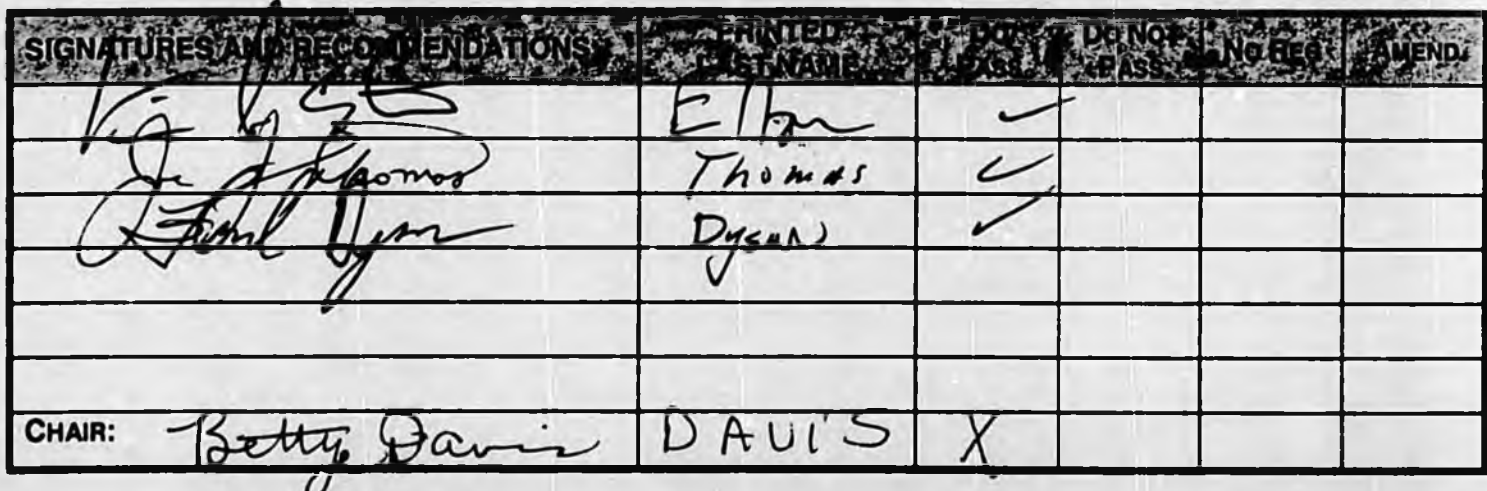 SIGNATURES AND RECOMMENDATIONS PRINTED LAST NAME DO PASS DO NOT PASS NO REC. AMEND.
Elton ✓
Thomas Thomas ✓
Dyson Dyson ✓
CHAIR: Betty Davis DAVIS X